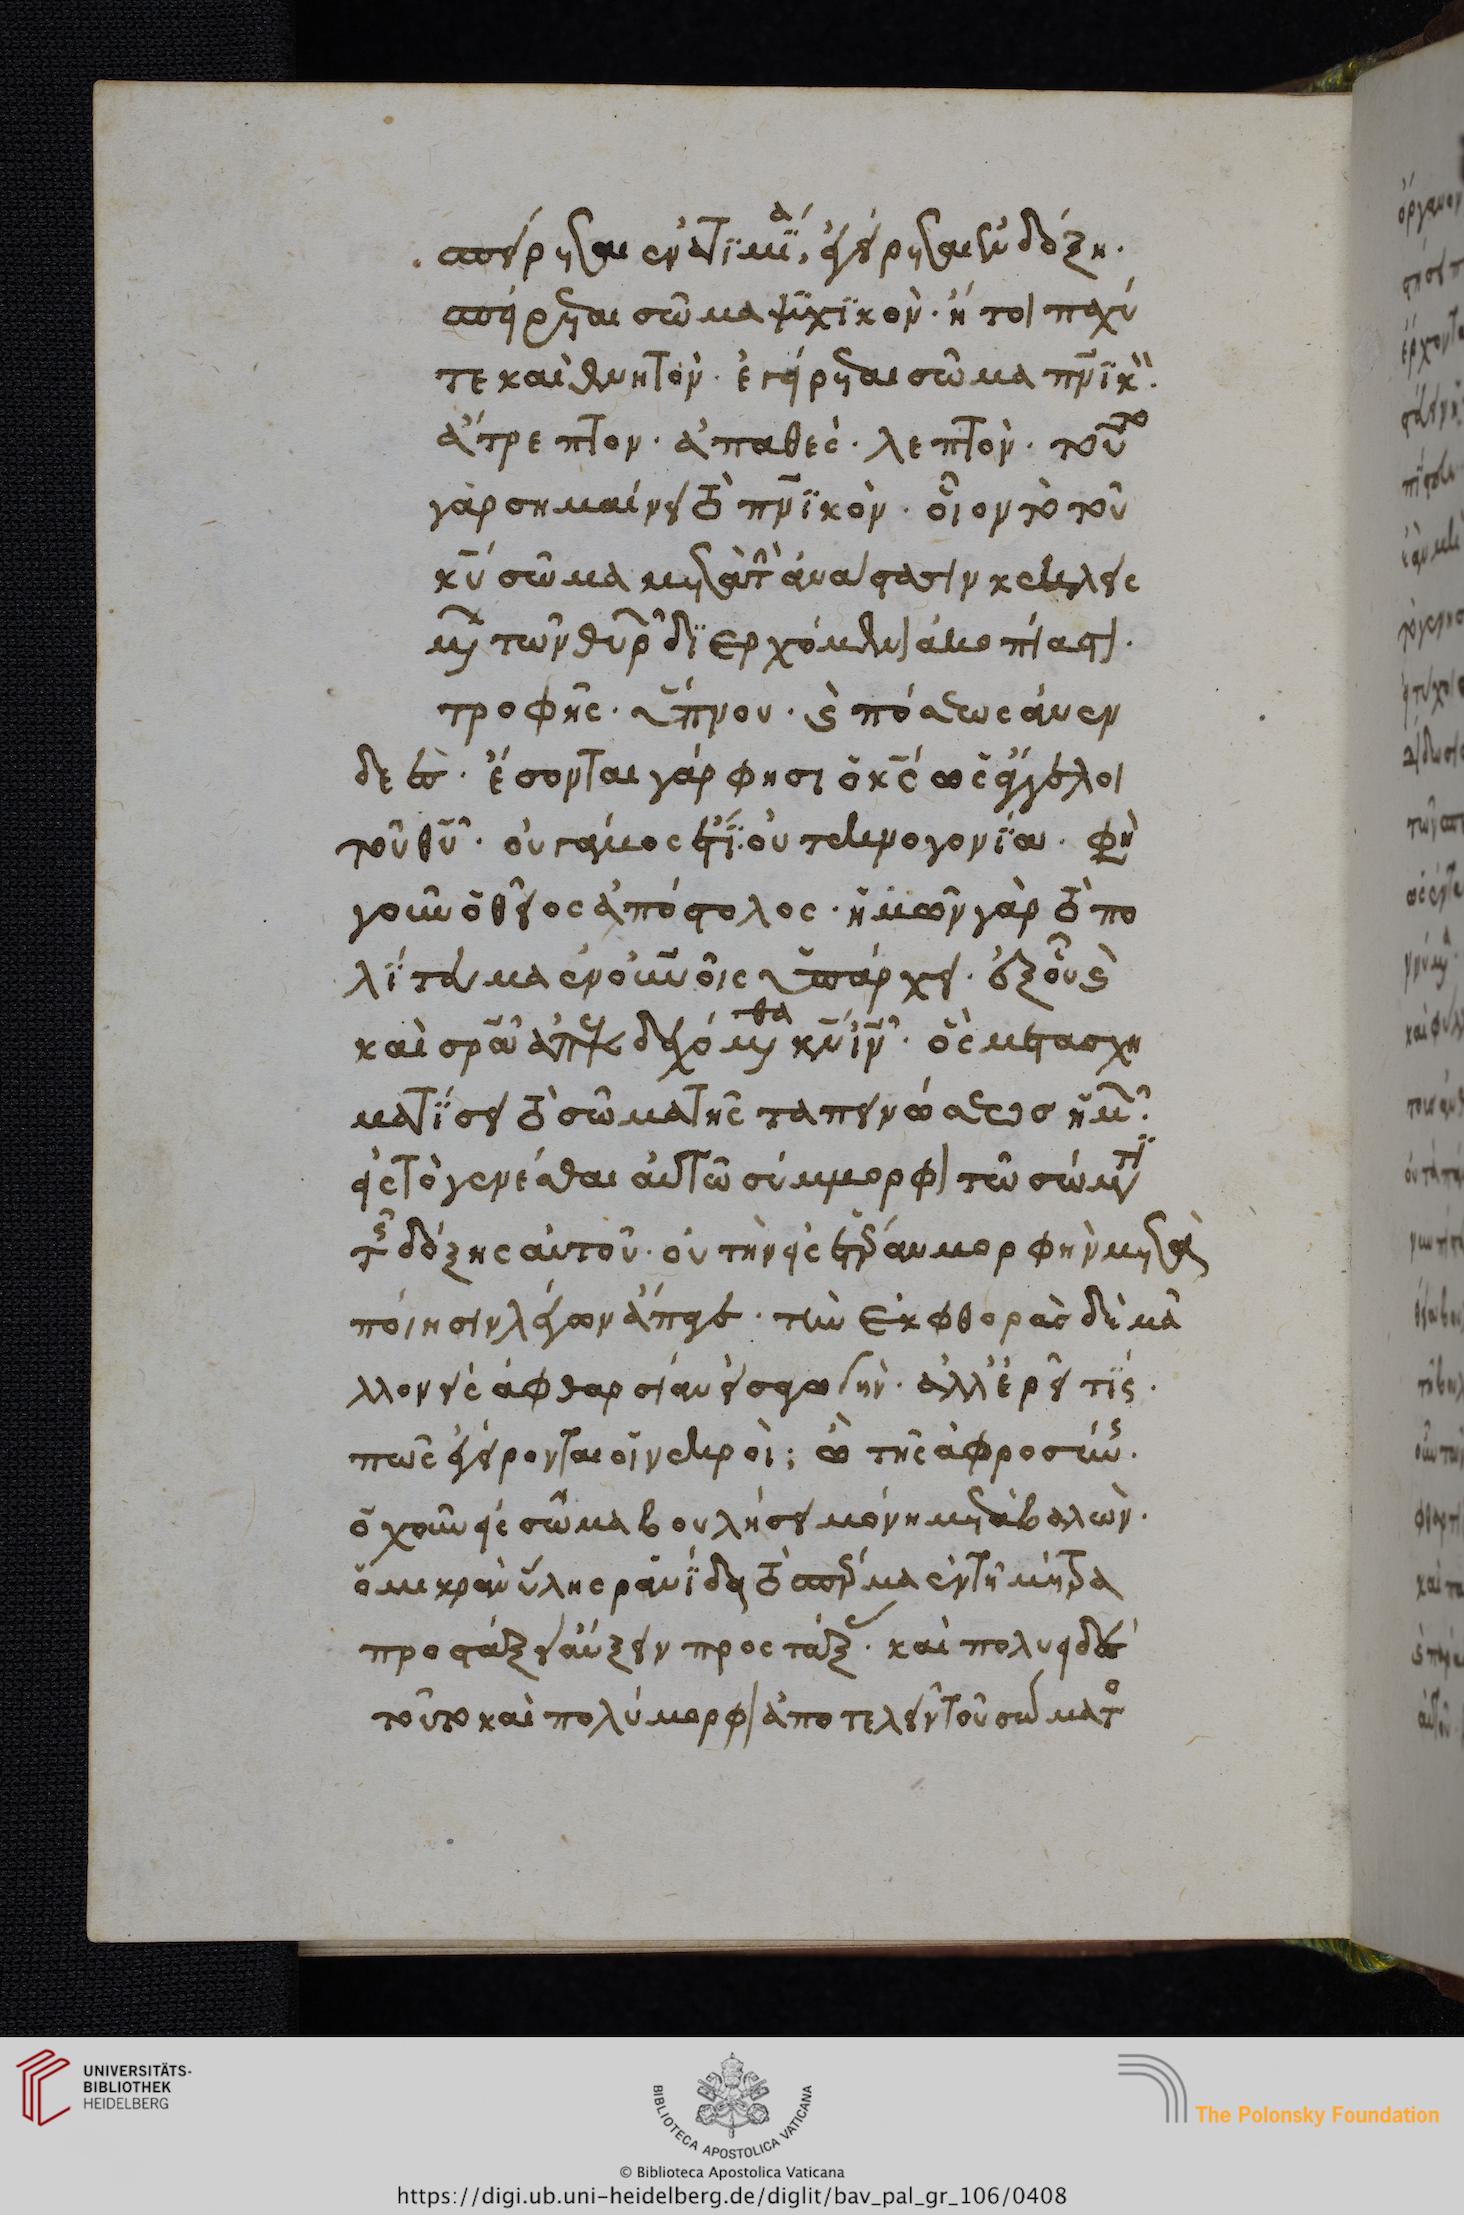 σπείρεται ἐν ἀτιμία, ἐγείρεται ἐν δόξη·
σπείρεται σῶμα ψυχϊκὸν· ἤτοι παχύ
τε καὶ θνητόν· ἐγείρεται σῶμα πνϊκὸν·
ἄτρεπτον· ἀπαθὲς· λεπτὸν· τοῦτο
γὰρ σημαίνει τὸ πνϊκὸν· οἷον τὸ τοῦ
κυ σῶμα μετὰ τὴν ἀνάστασιν κεκλεισ
μένων τῶν θυρῶν διερχόμενον ἀκοπίαστον·
τροφῆς· ὕπνου· καὶ πόσεως ἀνεν
δεὲς· ἔσονται γάρ φησι ὁ κς ὡς ἄγγελοι
τοῦ θυ· οὐ γάμος ἔτι· οὐ τεκνογονία· φησὶ
γοῦν ὁ θεῖος ἀπόστολος· ἡμῶν γὰρ τὸ πο
λίτευμα ἐν οὐνοῖς ὑπάρχει· ἐξ οὗ
καὶ σρα ἀπεκδεχόμεθα κν ιν· ὃς μετασχη
ματίσει τὸ σῶμα τῆς ταπεινώσεως ἡμῶν
εἰς τὸ γενέσθαι αὐτῶ σύμμορφον τῶ σώματι
τῆς δόξης αὐτοῦ· οὐ τὴν εἰς ἑτέραν μορφὴν μετα
ποίησιν λέγων ἄπαγε· τὴν ἐκ φθορᾶς δὲ μᾶ
λλον εἰς ἀφθαρσίαν· ἀλλ' ἐρεῖ τίς·
πῶς ἐγείρονται οἱ νεκροὶ; ὢ τῆς ἀφροσύνης·
ὁ χοῦν εἰς σῶμα βουλήσει μόνη μεταβαλὼν·
ὁ μικρὰν ὕλης ρανίδα τὸ σπέρμα ἐν τῆ μήτρα
αὔξειν προστάξας· καὶ πολυειδὲς
τοῦτο καὶ πολύμορφον ἀποτελεῖν τοῦ σώματος
UNIVERSITÄTS-
BIBLIOTHEK
HEIDELBERG
BIBLIOTECA APOSTOLICA VATICANA
© Biblioteca Apostolica Vaticana
The Polonsky Foundation
https://digi.ub.uni-heidelberg.de/diglit/bav_pal_gr_106/0408